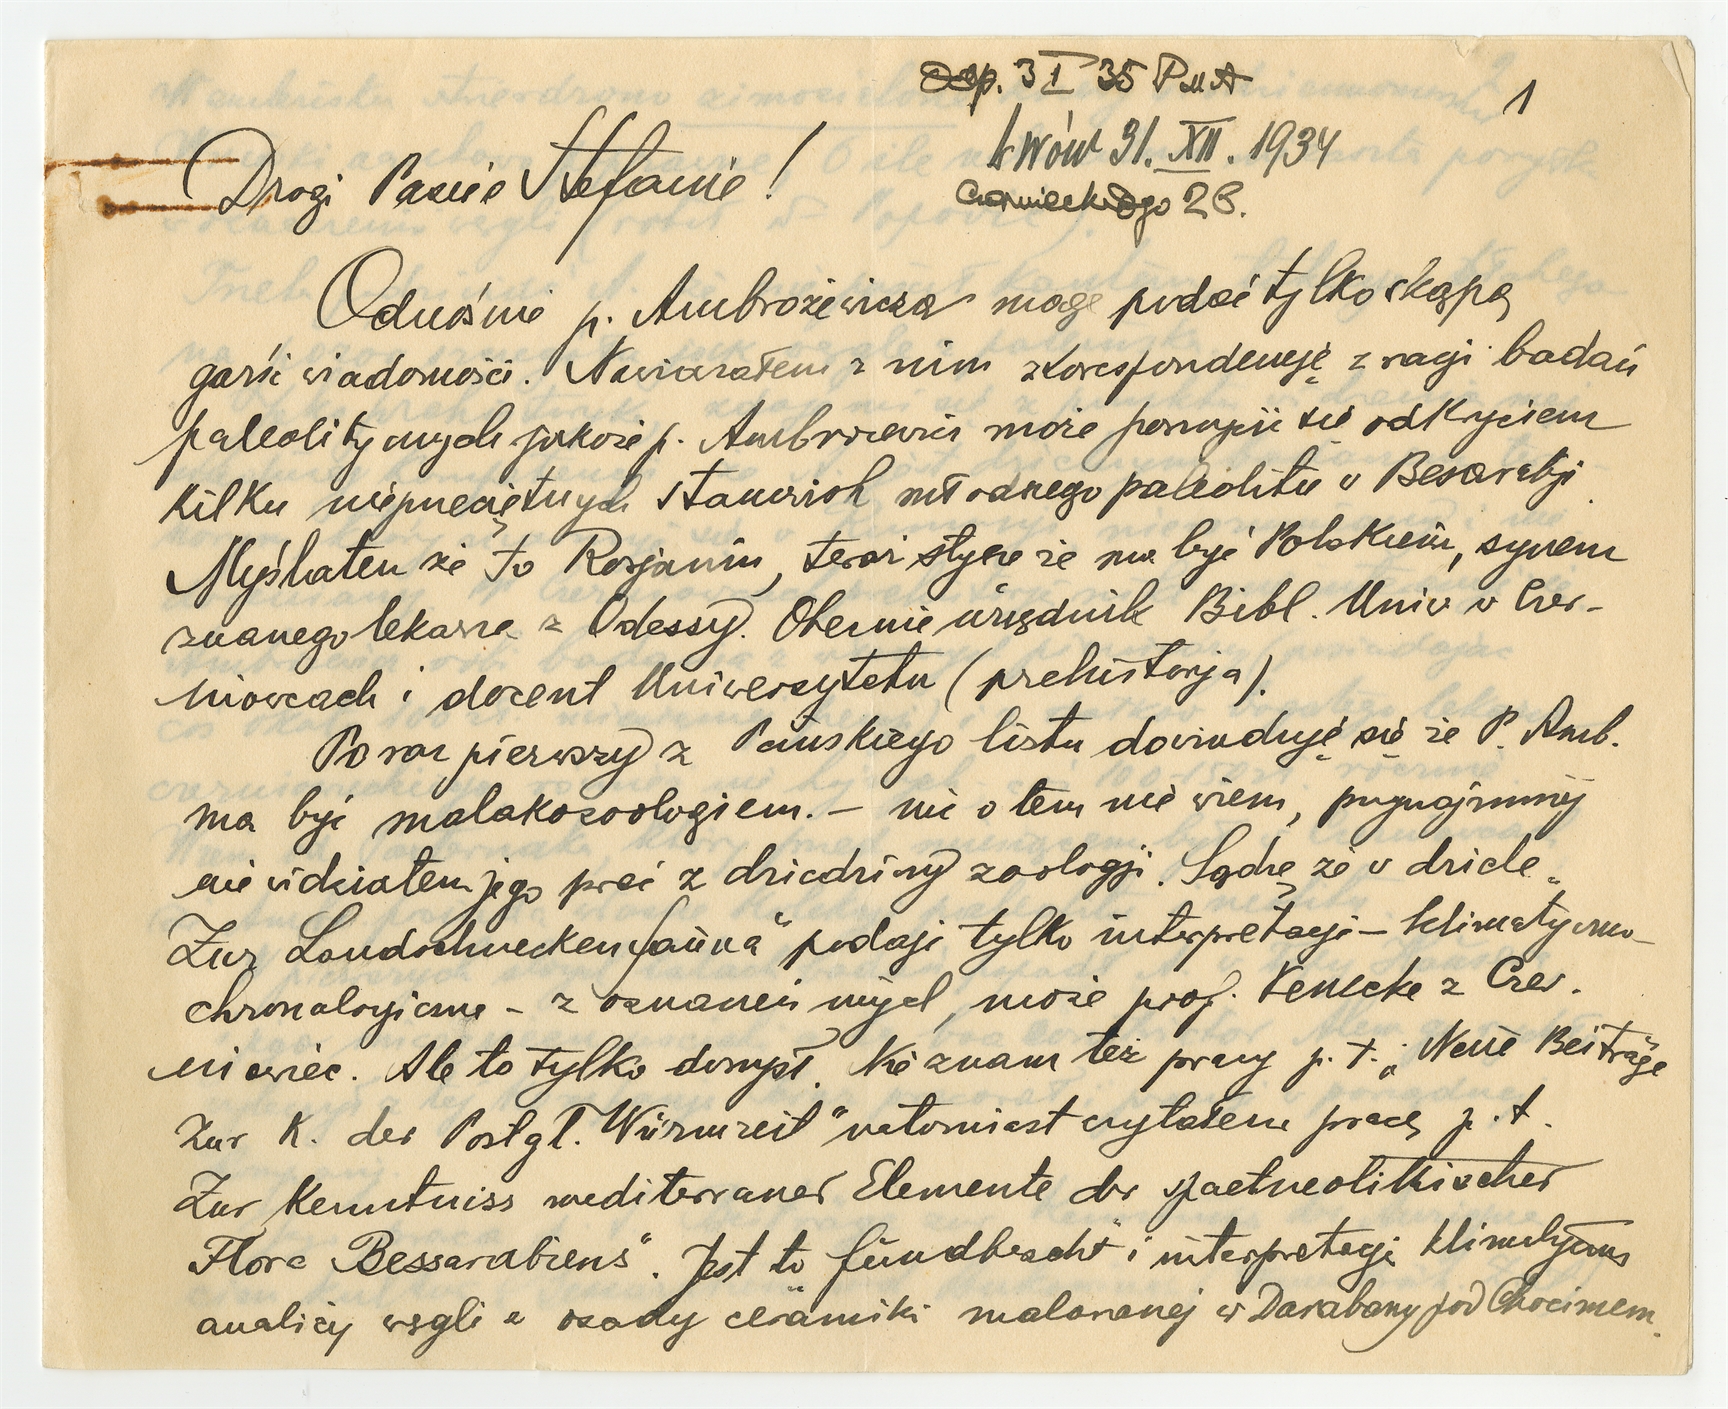 Odp. 3 I 35 PMA
1
Lwów 31. XII. 1934
Czarnieckiego 28.
Drogi Panie Stefanie!
Odnośnie p. Ambrożewicza mogę podać tylko skąpą
garść wiadomości. Nawiązałem z nim korespondencję z racji badań
paleolitycznych jakoże p. Ambrożewicz może poszczycić się odkryciem
kilku nieprzeciętnych stanowisk młodszego paleolitu w Besarabji.
Myślałem że to Rosjanin, teraz słyszę że ma być Polakiem, synem
znanego lekarza z Odessy. Obecnie urzędnik Bibl. Univ w Czer-
niowcach i docent Uniwersytetu (prehistorja).
Po raz pierwszy z Pańskiego listu dowiaduję się że P. Amb.
ma być malakozoologiem. – nic o tem nie wiem, przynajmniej
nie widziałem jego prac z dziedziny zoologji. Sądzę że w dziele „
Zur Landschneckenfauna" podaje tylko interpretację – klimatyczno-
chronologiczną – z oznaczeń innych, może prof. Penecke z Czer-
niowiec. Ale to tylko domysł. Nie znam też pracy p. t. „Neue Beiträge
zur K. der Postgl. Würmzeit" natomiast czytałem pracę p. t.
Zur Kenntniss mediterraner Elemente der spaetneolithischer
Flora Bessarabiens". Jest to fundbericht i interpretacja klimatyczna
analizy węgli z osady ceramiki malowanej w Darabany pod Chocimem.